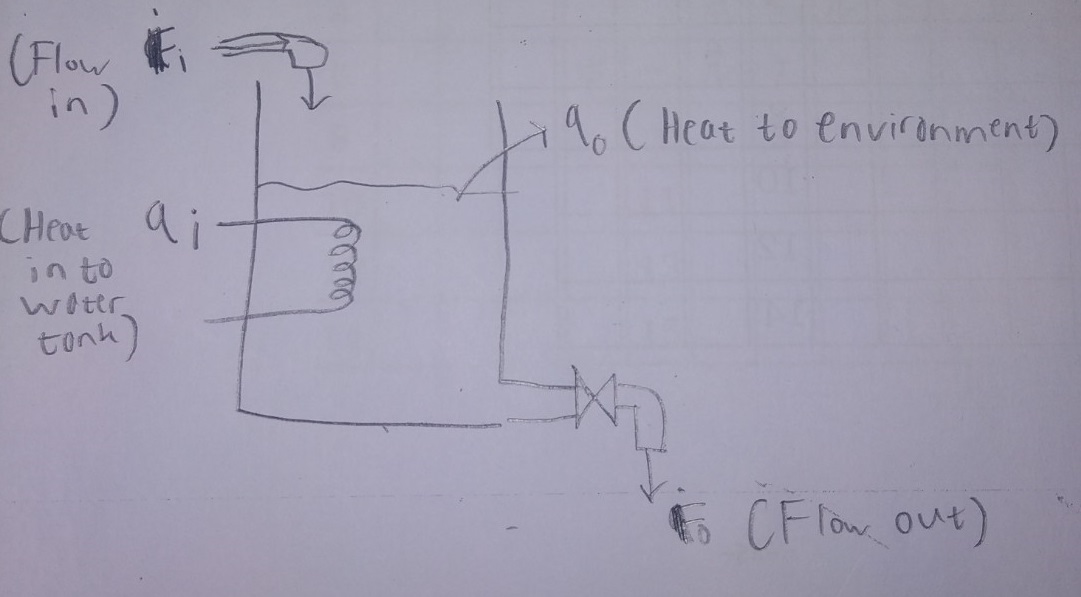 (Flow Fi
in)
qo (Heat to environment)
(Heat qi
in to
water
tank)
Fo (Flow out)